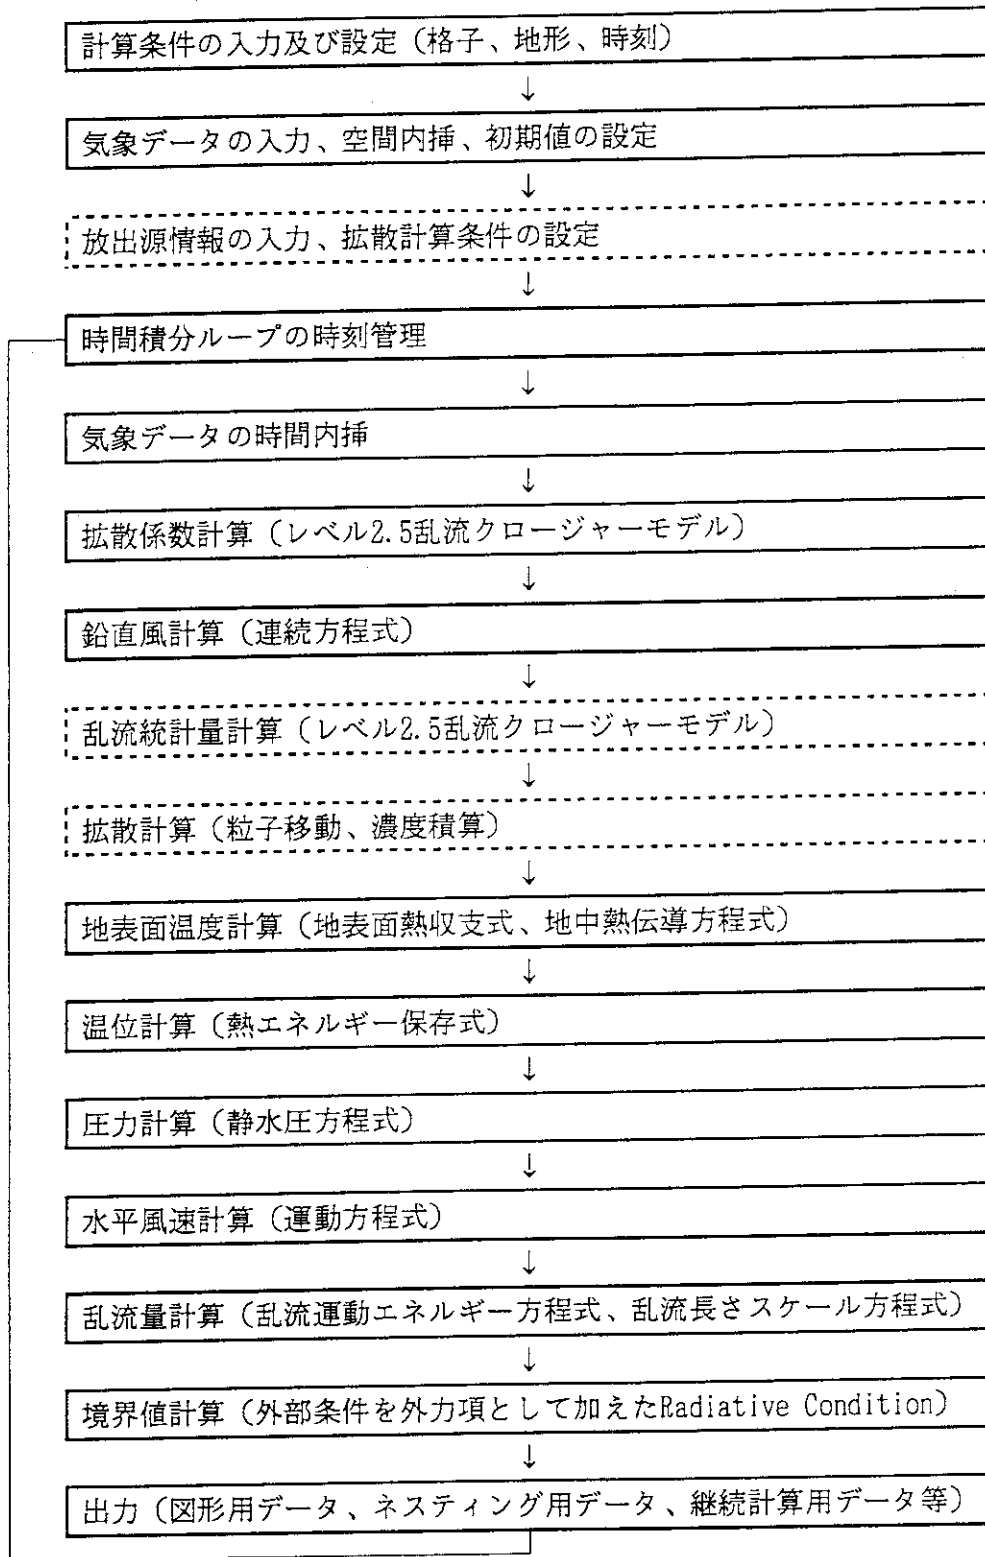 計算条件の入力及び設定（格子、地形、時刻）
↓
気象データの入力、空間内挿、初期値の設定
↓
放出源情報の入力、拡散計算条件の設定
↓
時間積分ループの時刻管理
↓
気象データの時間内挿
↓
拡散係数計算（レベル2.5乱流クロージャーモデル）
↓
鉛直風計算（連続方程式）
↓
乱流統計量計算（レベル2.5乱流クロージャーモデル）
↓
拡散計算（粒子移動、濃度積算）
↓
地表面温度計算（地表面熱収支式、地中熱伝導方程式）
↓
温位計算（熱エネルギー保存式）
↓
圧力計算（静水圧方程式）
↓
水平風速計算（運動方程式）
↓
乱流量計算（乱流運動エネルギー方程式、乱流長さスケール方程式）
↓
境界値計算（外部条件を外力項として加えたRadiative Condition）
↓
出力（図形用データ、ネスティング用データ、継続計算用データ等）